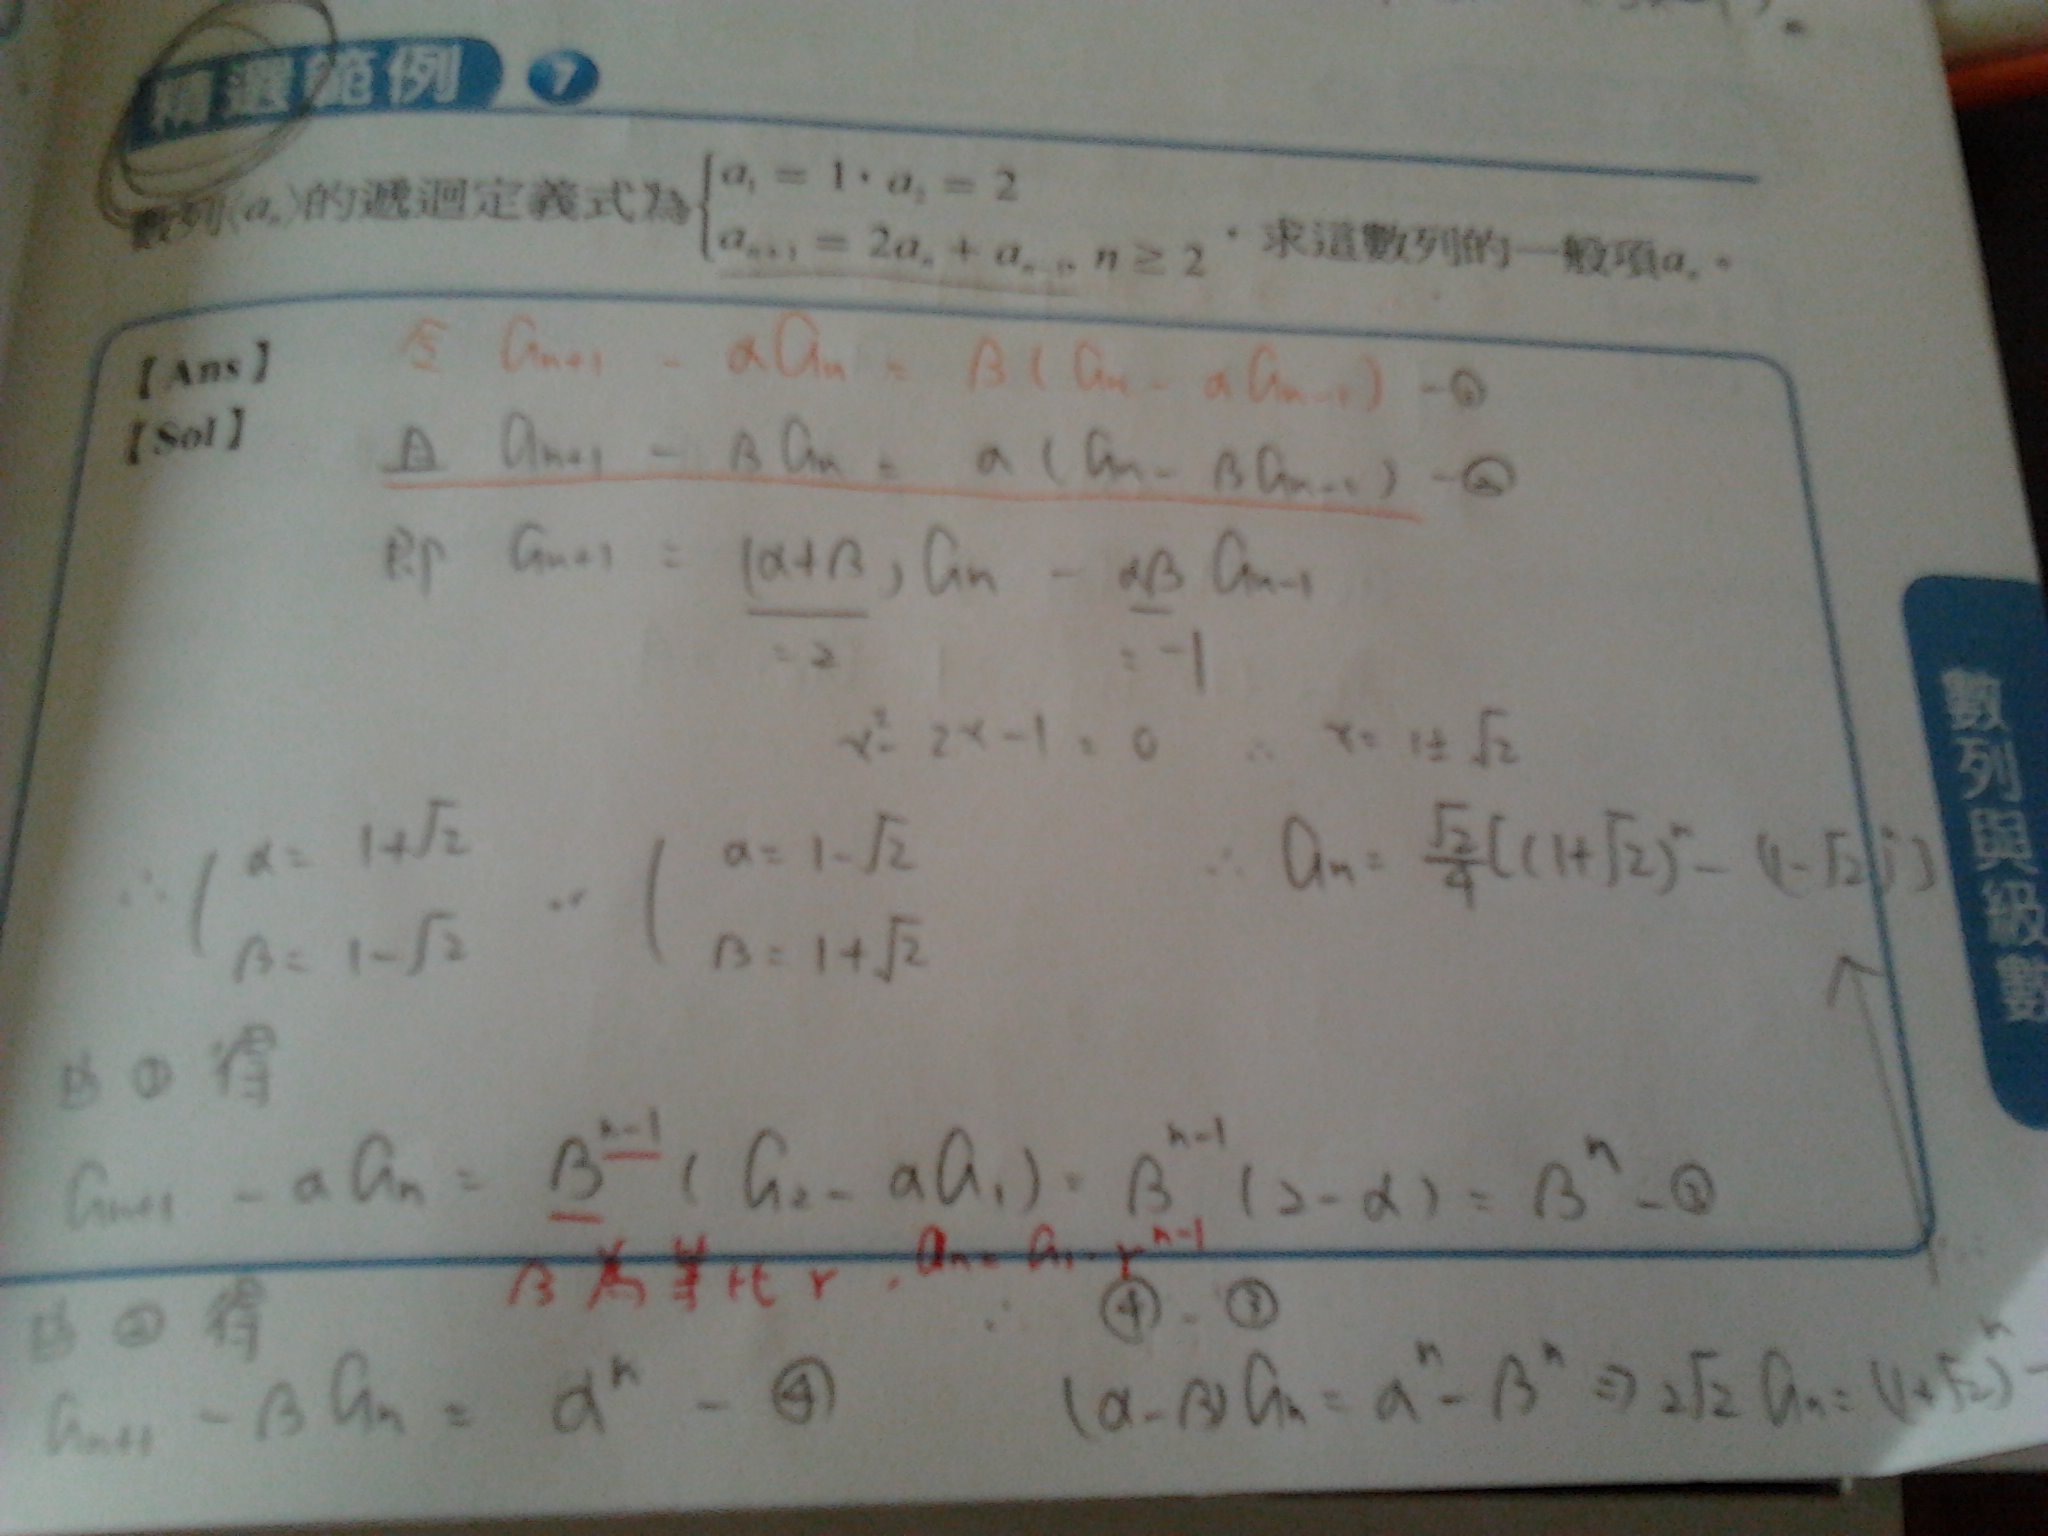 精選範例 7
數列⟨aₙ⟩的遞迴定義式為{a₁ = 1,a₂ = 2
aₙ₊₁ = 2aₙ + aₙ₋₁, n ≥ 2,求這數列的一般項aₙ。
【Ans】
令 aₙ₊₁ - αaₙ = β(aₙ - αaₙ₋₁) -①
【Sol】
且 aₙ₊₁ - βaₙ = α(aₙ - βaₙ₋₁) -②
即 aₙ₊₁ = (α+β)aₙ - αβ aₙ₋₁
=2 =-1
x² - 2x - 1 = 0 ∴ x = 1±√2
∴ { α = 1+√2 or { α = 1-√2
β = 1-√2 β = 1+√2
∴ aₙ = √2/4 [(1+√2)ⁿ - (1-√2)ⁿ]
由 ① 得
aₙ₊₁ - αaₙ = βⁿ⁻¹(a₂ - αa₁) = βⁿ⁻¹(2-α) = βⁿ -③
β為等比 r , aₙ = a₁·rⁿ⁻¹
由 ② 得
∴ ④ - ③
aₙ₊₁ - βaₙ = αⁿ - ④
(α-β)aₙ = αⁿ - βⁿ ⇒ 2√2 aₙ = (1+√2)ⁿ -
數列與級數